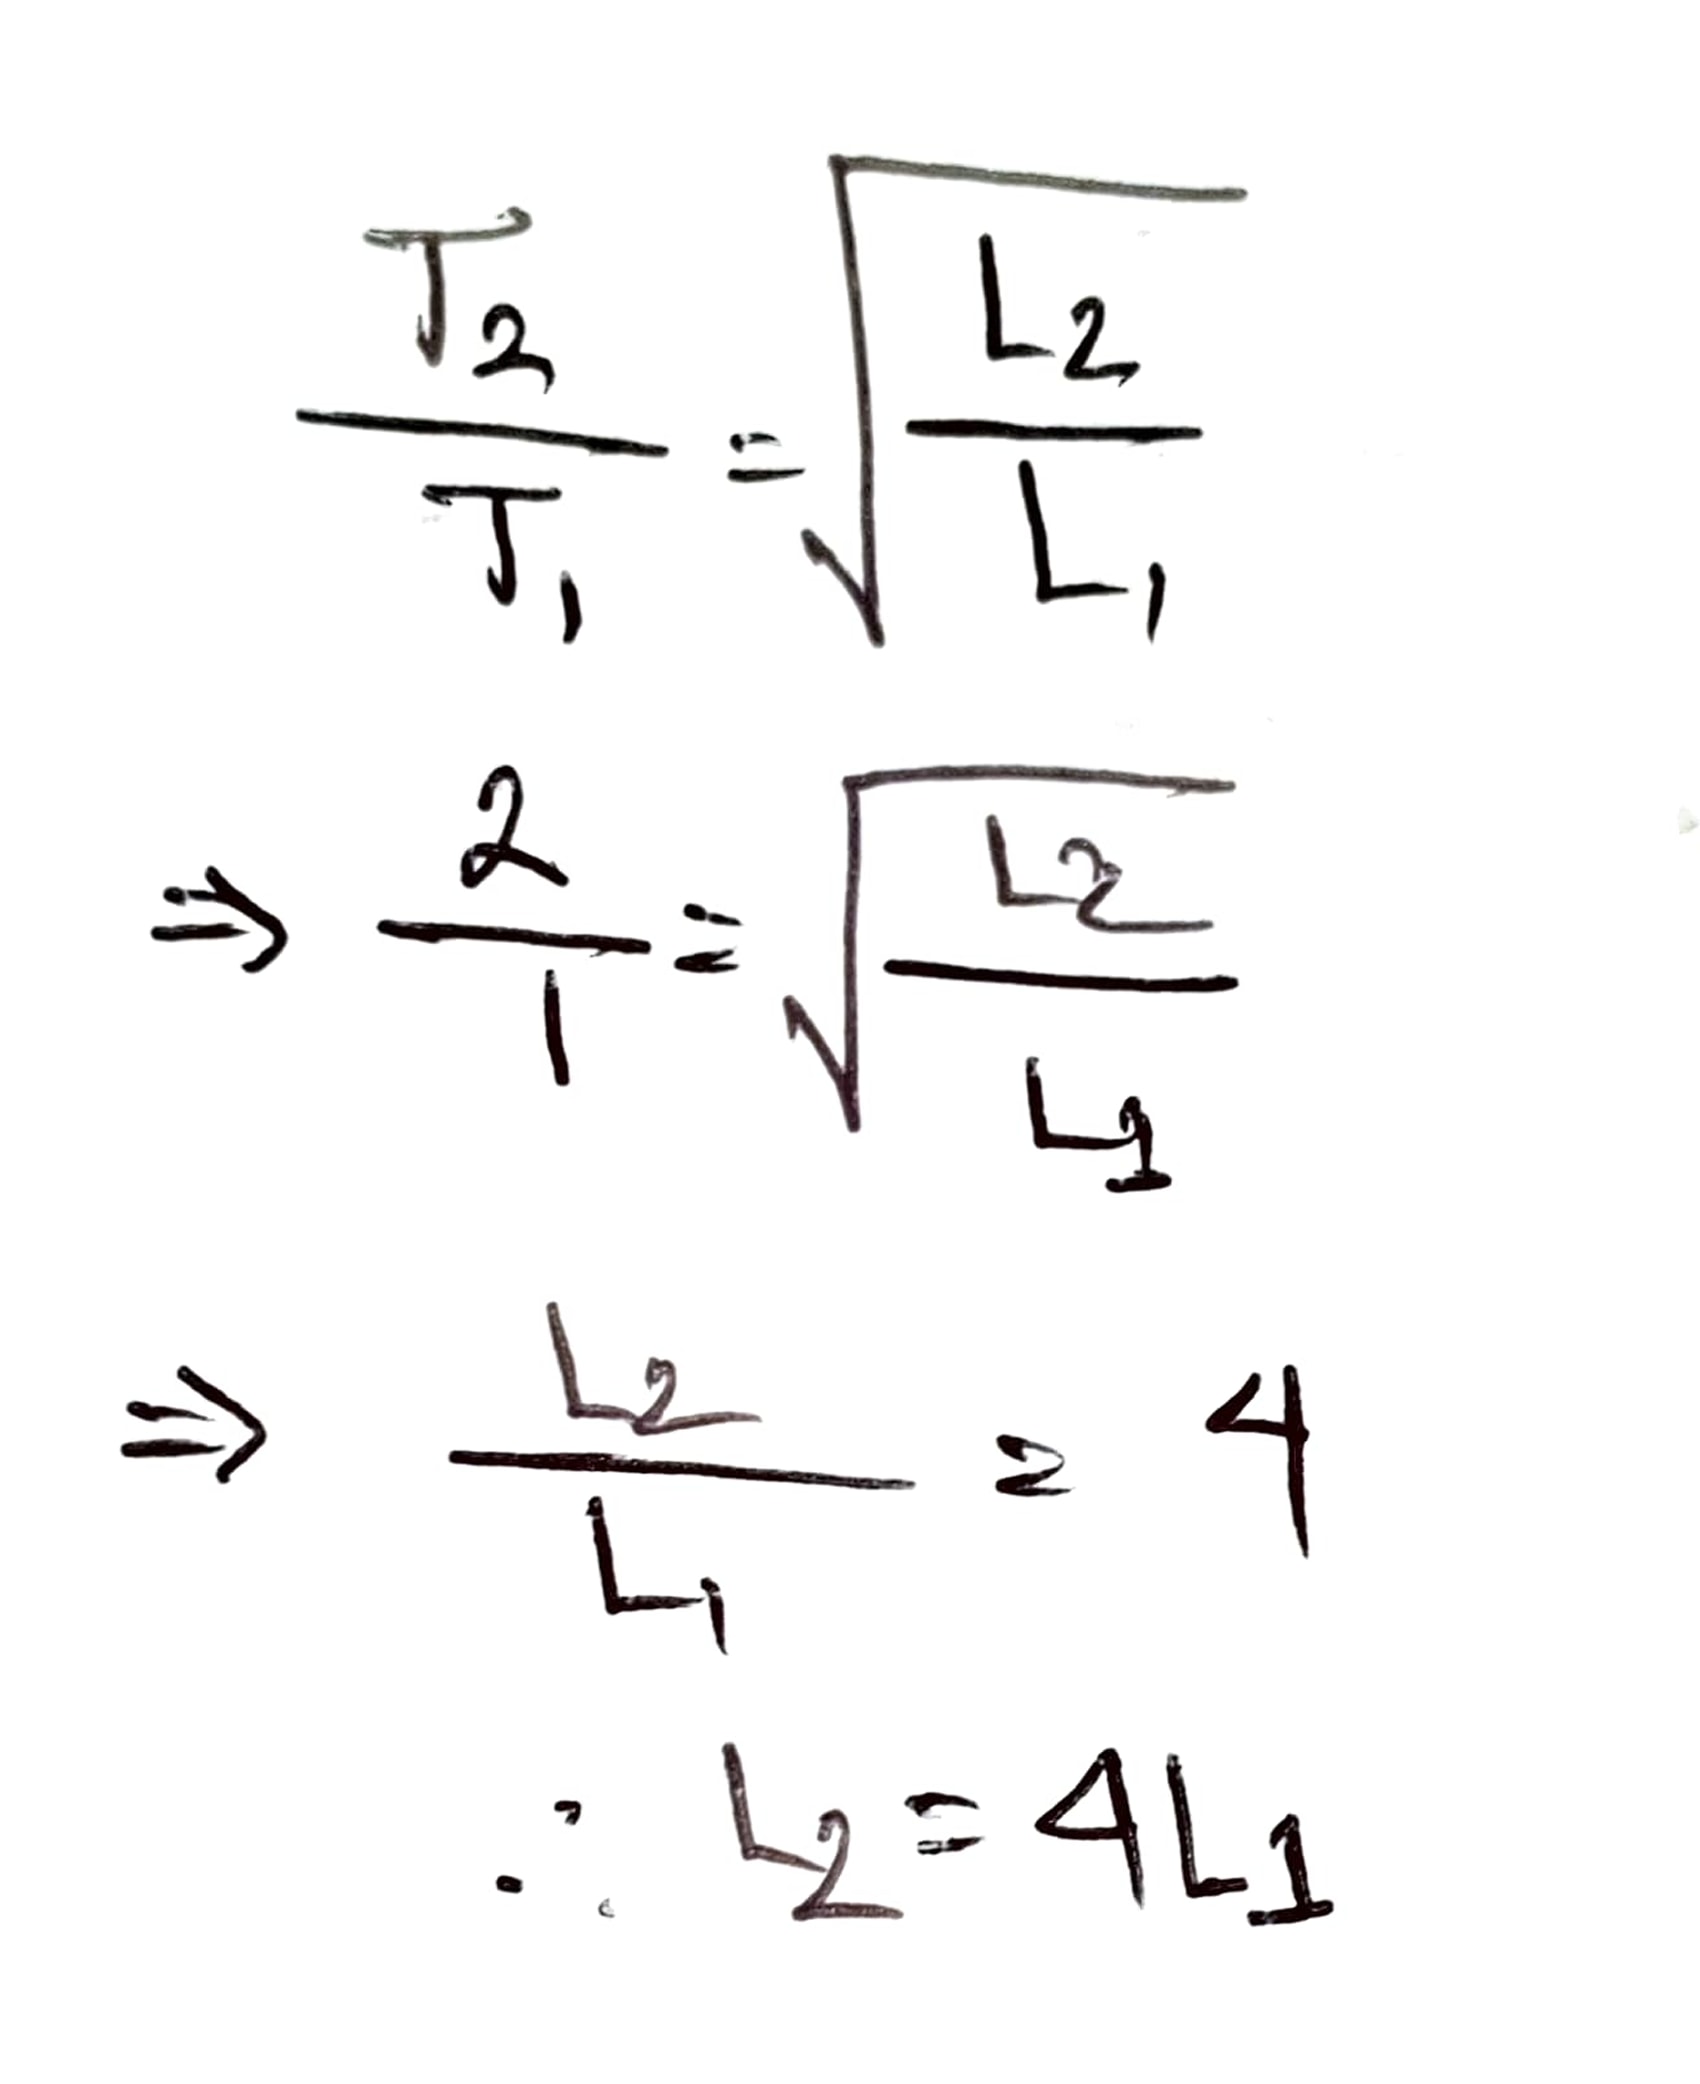 T₂/T₁ = √(L₂/L₁)
⇒ 2/1 = √(L₂/L₁)
⇒ L₂/L₁ = 4
∴ L₂ = 4L₁